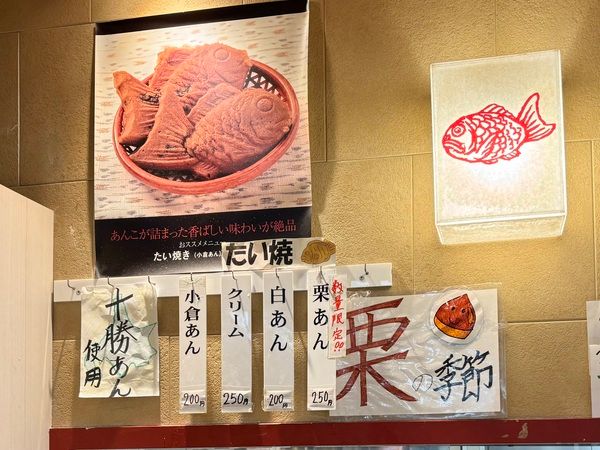 あんこが詰まった香ばしい味わいが絶品
おススメメニュー
たい焼き（小倉あん）
たい焼
十勝あん
使用
小倉あん
200円
クリーム
250円
白あん
200円
栗あん
250円
数量限定!!
栗の季節